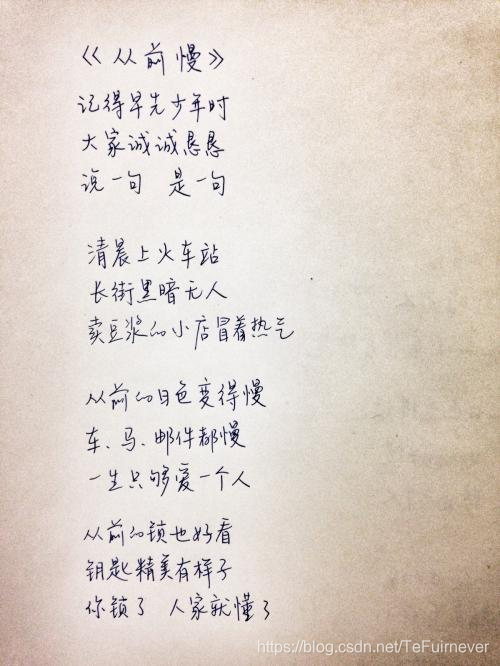 《从前慢》
记得早先少年时
大家诚诚恳恳
说一句 是一句
清晨上火车站
长街黑暗无人
卖豆浆的小店冒着热气
从前的日色变得慢
车、马、邮件都慢
一生只够爱一个人
从前的锁也好看
钥匙精美有样子
你锁了 人家就懂了
https://blog.csdn.net/TeFuirnever